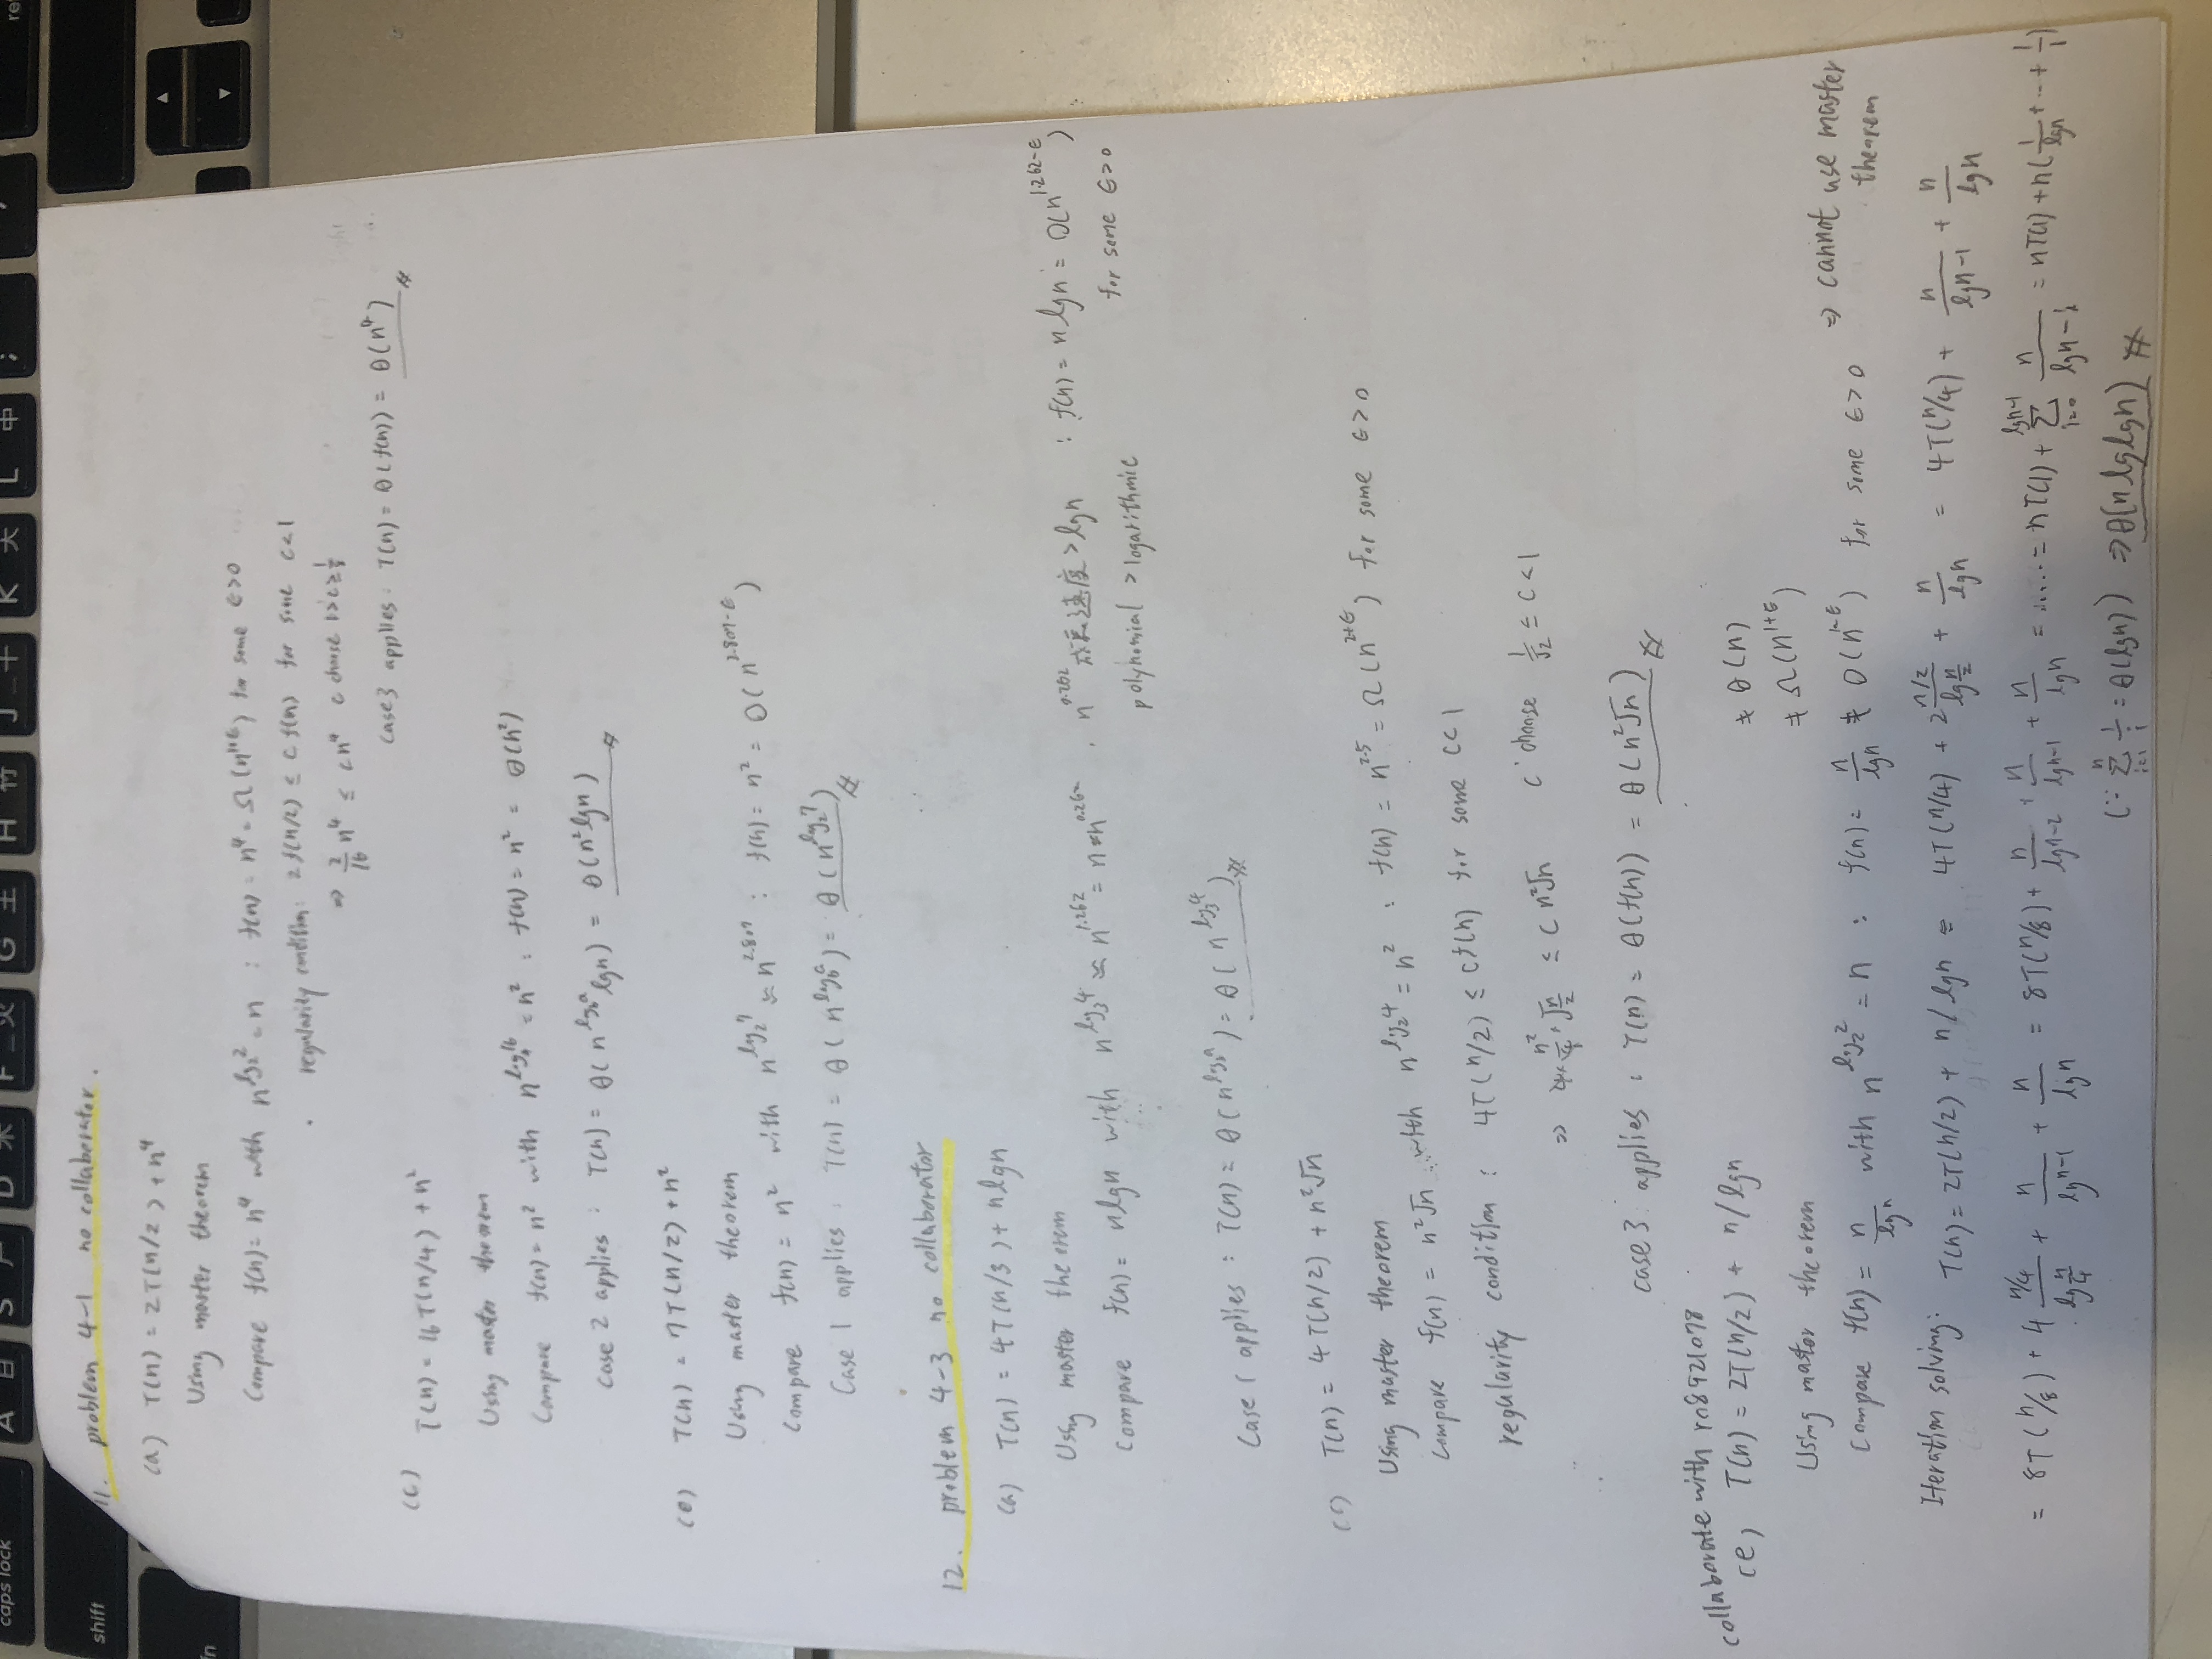 caps lock
A 日
S 尸
D 木
F 火
G 土
H 竹
J 十
K 大
L 中
;
shift
11. problem 4-1 no collaborator.
(a) T(n) = 2T(n/2) + n⁴
Using master theorem
Compare f(n) = n⁴ with n^{log₂2} = n : f(n) = n⁴ = Ω(n^{1+ε}) for some ε>0
regularity condition: 2f(n/2) ≤ c f(n) for some c<1
⇒ 2/16 n⁴ ≤ cn⁴ c choose 1>c≥1/8
case3 applies : T(n) = θ(f(n)) = θ(n⁴) #
(c) T(n) = 16T(n/4) + n²
Using master theorem
Compare f(n) = n² with n^{log₄16} = n² : f(n) = n² = θ(n²)
case 2 applies : T(n) = θ(n^{log_b a} lgn) = θ(n²lgn) #
(e) T(n) = 7T(n/2) + n²
Using master theorem
Compare f(n) = n² with n^{log₂7} ≈ n^{2.807} : f(n) = n² = O(n^{2.807-ε})
Case 1 applies : T(n) = θ(n^{log_b a}) = θ(n^{log₂7}) #
12. problem 4-3 no collaborator
(a) T(n) = 4T(n/3) + nlgn
Using master theorem
Compare f(n) = nlgn with n^{log₃4} ≈ n^{1.262} = n*n^{0.262} . n^{0.262}成長速度>lgn : f(n) = nlgn = O(n^{1.262-ε})
polynomial > logarithmic for some ε>0
Case 1 applies : T(n) = θ(n^{log_b a}) = θ(n^{log₃4}) #
(c) T(n) = 4T(n/2) + n²√n
Using master theorem
Compare f(n) = n²√n with n^{log₂4} = n² : f(n) = n^{2.5} = Ω(n^{2+ε}) for some ε>0
regularity condition : 4T(n/2) ≤ cf(n) for some c<1
⇒ 4*n²/4*√(n/2) ≤ c n²√n c choose 1/√2 ≤ c <1
case3 applies : T(n) = θ(f(n)) = θ(n²√n) #
collaborate with r08921078
(e) T(n) = 2T(n/2) + n/lgn
≠ θ(n)
≠ Ω(n^{1+ε})
Using master theorem
Compare f(n) = n/lgn with n^{log₂2} = n : f(n) = n/lgn ≠ O(n^{1-ε}) for some ε>0 ⇒ cannot use master theorem
Iteration solving: T(n) = 2T(n/2) + n/lgn = 4T(n/4) + 2(n/2)/(lg n/2) + n/lgn = 4T(n/4) + n/(lgn-1) + n/lgn
= 8T(n/8) + 4(n/4)/(lg n/4) + n/(lgn-1) + n/lgn = 8T(n/8) + n/(lgn-2) + n/(lgn-1) + n/lgn = ..... = nT(1) + Σ_{i=0}^{lgn-1} n/(lgn-i) = nT(1) + n(1/lgn + ... + 1/1)
(∵ Σ_{i=1}^{n} 1/i = θ(lgn)) ⇒ θ(nlglgn) #